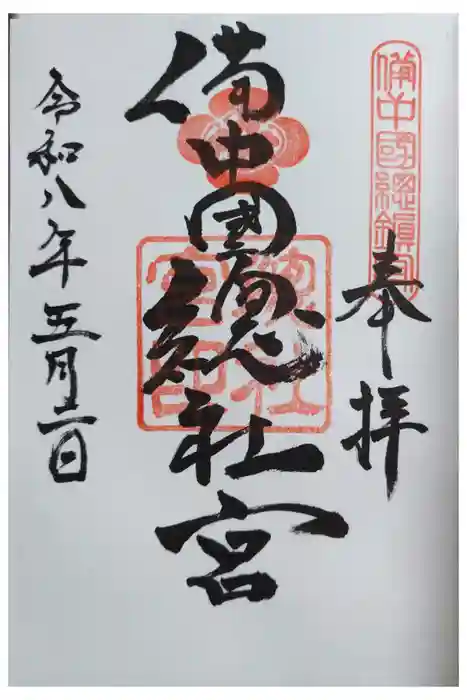 備中國總鎮守
奉拝
備中國總社宮
總社
宮印
令和八年五月日